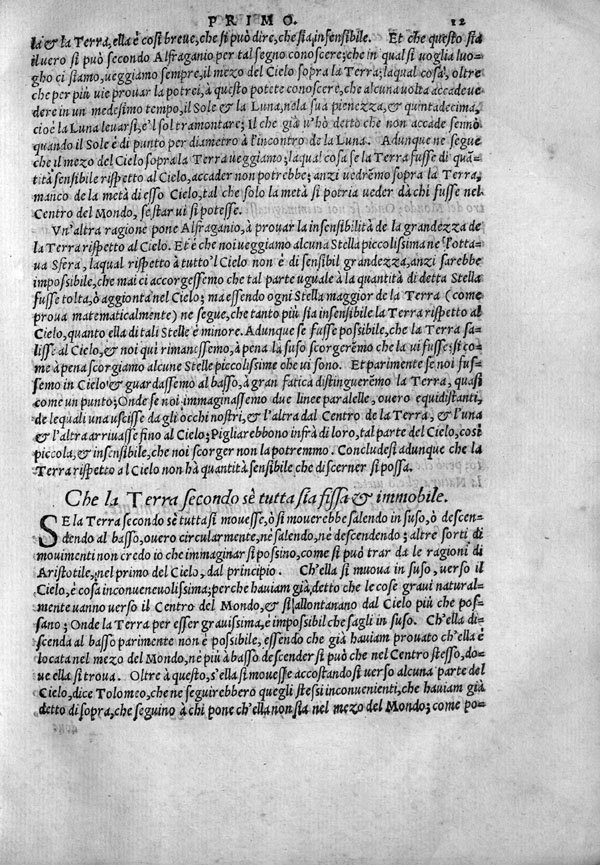 PRIMO. 12
la & la Terra, ella è cosi breve, che si può dire, che sia, insensibile. Et che questo sia
il uero si può secondo Alfraganio per tal segno conoscere; che in qual si uoglia luo-
gho ci siamo, ueggiamo sempre, il mezo del Cielo sopra la Terra; laqual cosa, oltre
che per più uie prouar la potrei, à questo potete conoscere, che alcuna uolta accade ue
dere in un medesimo tempo, il Sole & la Luna, nela sua pienezza, & quintadecima,
cioè la Luna leuarsi, e'l sol tramontare; Il che già u'hò detto che non accade sennò
quando il Sole è di punto per diametro à l'incontro de la Luna. Adunque ne segue
che il mezo del Cielo sopra la Terra ueggiamo; laqual cosa se la Terra fusse di quã-
tità sensibile rispetto al Cielo, accader non potrebbe; anzi uedrẽmo sopra la Terra,
manco de la metà di esso Cielo, tal che solo la metà si potria ueder dà chi fusse nel
Centro del Mondo, se star ui si potesse.
Vn'altra ragione pone Alfraganio, à prouar la insensibilità de la grandezza de
la Terra rispetto al Cielo. Et è che noi ueggiamo alcuna Stella piccolissima ne l'otta-
ua Sfera, laqual rispetto à tutto'l Cielo non è di sensibil grandezza, anzi sarebbe
impossibile, che mai ci accorgessemo che tal parte uguale à la quantità di detta Stella
fusse tolta, ò aggionta nel Cielo; ma essendo ogni Stella maggior de la Terra (come
prova matematicalmente) ne segue, che tanto più sia insensibile la Terra rispetto al
Cielo, quanto ella di tali Stelle è minore. Adunque se fusse possibile, che la Terra sa-
lisse al Cielo, & noi qui rimanessemo, à pena la suso scorgerẽmo che la ui fusse; si co-
me à pena scorgiamo alcune Stelle piccolissime che ui sono. Et parimente se noi fus-
semo in Cielo & guardassemo al basso, à gran fatica distinguerẽmo la Terra, quasi
come un punto; Onde se noi immaginassemo due linee paralelle, ouero equidistanti,
de lequali una uscisse da gli occhi nostri, & l'altra dal Centro de la Terra, & l'una
& l'altra arriuasse fino al Cielo; Pigliarebbono infrà di loro, tal parte del Cielo, così
piccola, & insensibile, che noi scorger non la potremmo. Concludesi adunque che la
Terra rispetto al Cielo non hà quantità sensibile che discerner si possa.
Che la Terra secondo sè tutta sia fissa & immobile.
SE la Terra secondo sè tutta si mouesse, ò si mouerebbe salendo in suso, ò descen-
dendo al basso, ouero circularmente, nè salendo, nè descendendo; altre sorti di
mouimenti non credo io che immaginar si possino, come si può trar da le ragioni di
Aristotile, nel primo del Cielo, dal principio. Ch'ella si muoua in suso, uerso il
Cielo, è cosa inconueneuolissima; perche hauiam già, detto che le cose graui natural-
mente uanno uerso il Centro del Mondo, & si allontanano dal Cielo più che pos-
sano; Onde la Terra per esser grauissima, è impossibil che sagli in suso. Ch'ella di-
scenda al basso parimente non è possibile, essendo che già hauiam prouato ch'ella è
locata nel mezo del Mondo, ne più à basso descender si può che nel Centro stesso, do-
ue ella si troua. Oltre à questo, s'ella si mouesse accostandosi uerso alcuna parte del
Cielo, dice Tolomeo, che ne seguirebbero quegli stessi inconuenienti, che hauiam già
detto di sopra, che seguino à chi pone ch'ella non sia nel mezo del Mondo; come po-